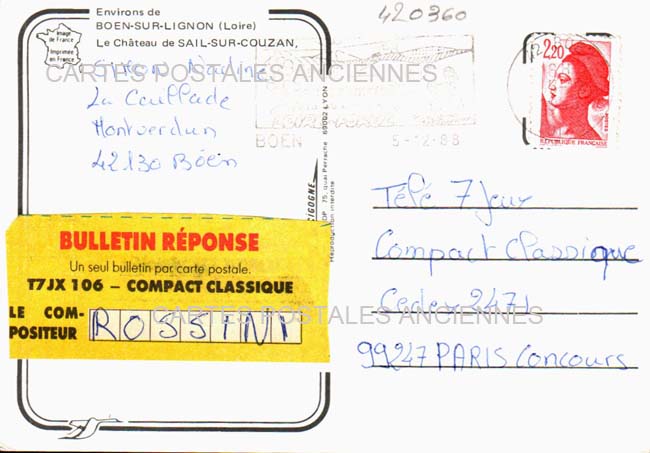 420360
Environs de
BOEN-SUR-LIGNON (Loire)
Le Château de SAIL-SUR-COUZAN,
Image de France
Imprimée en France
CARTES POSTALES ANCIENNES
Nadine
La Couillade
Montverdun
42130 Boën
BOEN
5-12-88
2,20
REPUBLIQUE FRANÇAISE
CIGOGNE
75, quai Perrache 69002 LYON
Reproduction interdite
BULLETIN RÉPONSE
Un seul bulletin par carte postale.
T7JX 106 – COMPACT CLASSIQUE
LE COM-
POSITEUR ROSSINI
Télé 7 Jeux
Compact Classique
Cedex 2471
CARTES POSTALES ANCIENNES
99247 PARIS Concours